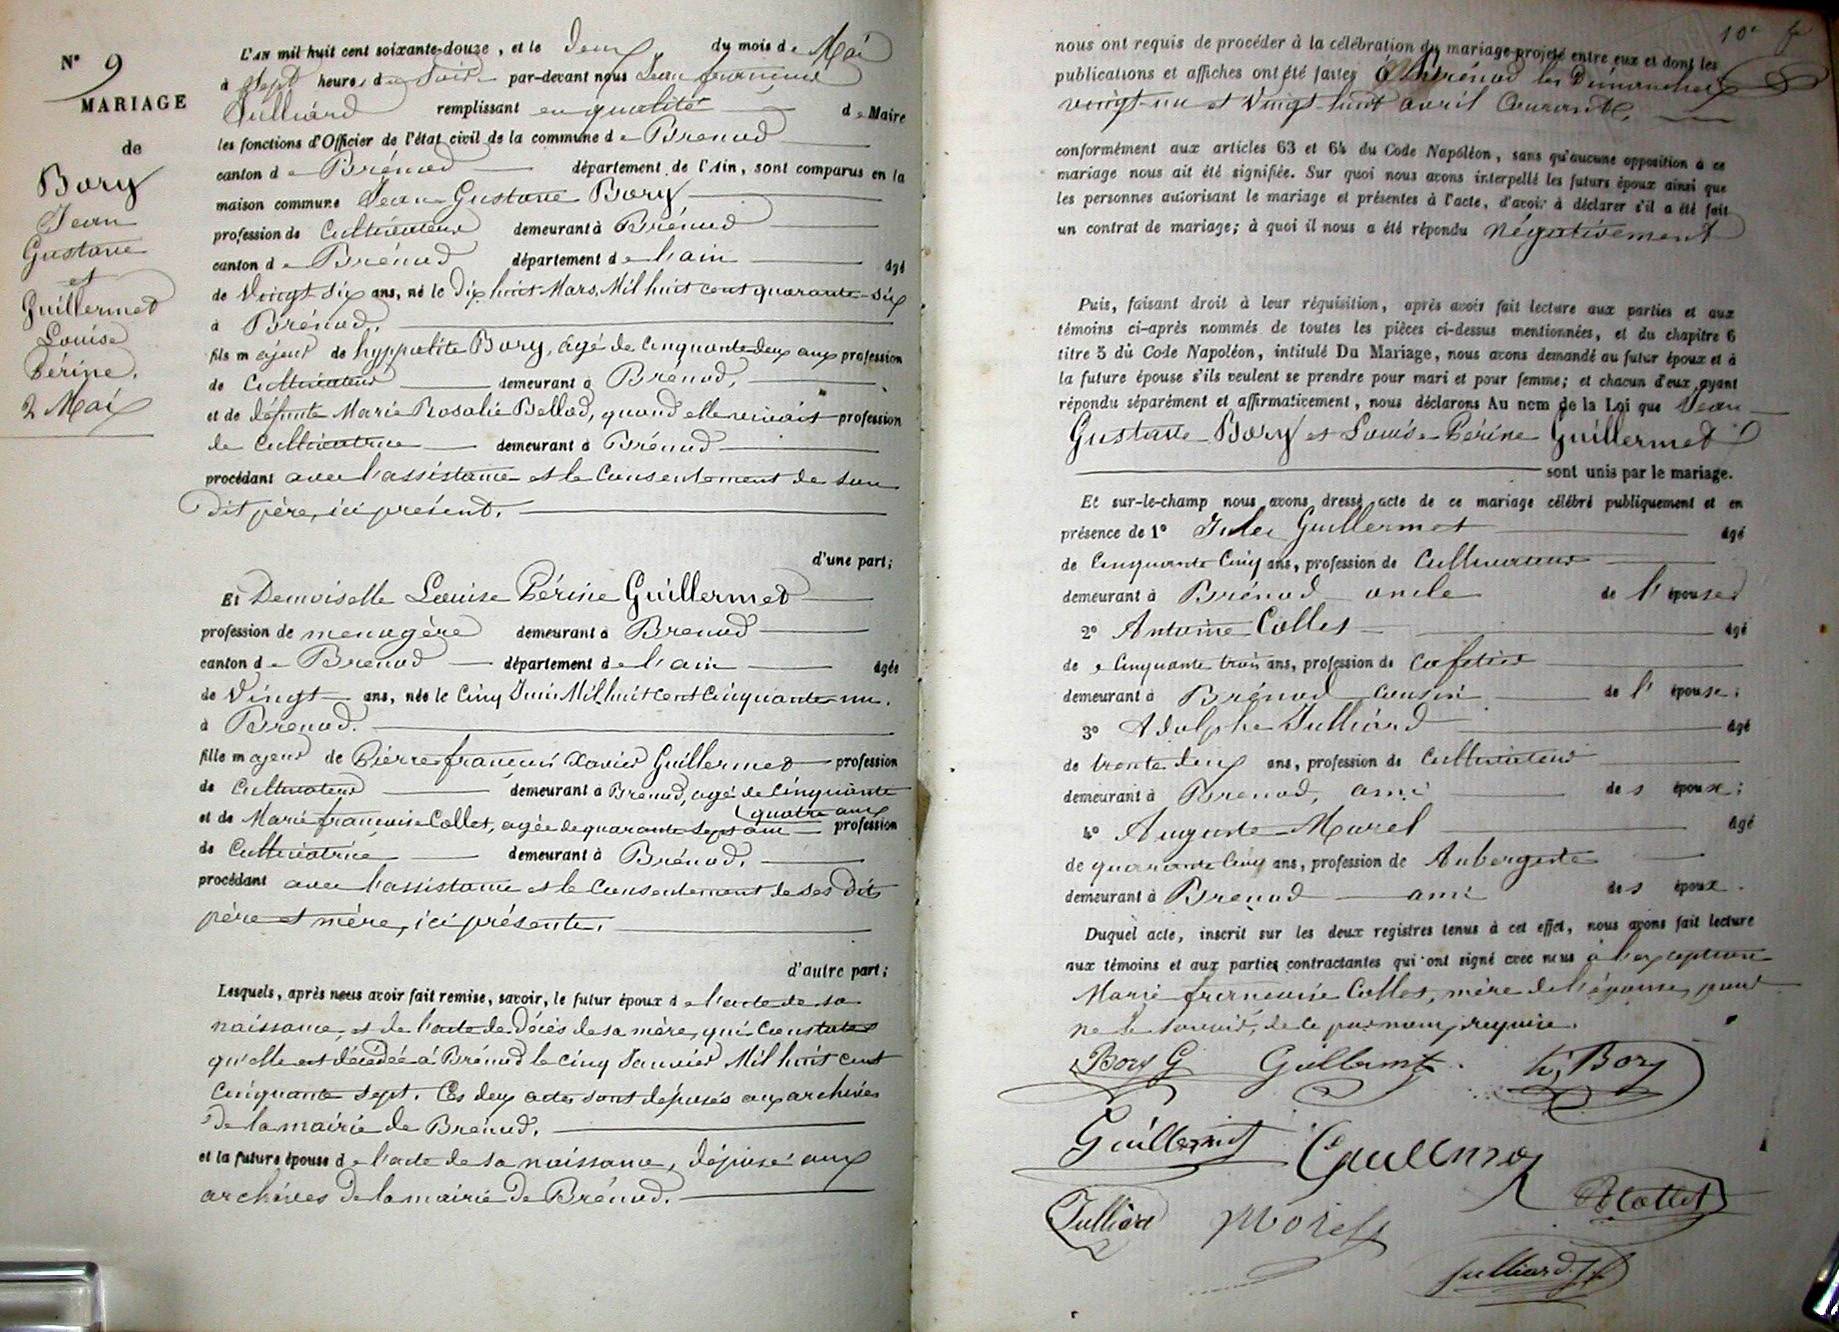 N° 9
MARIAGE
de
Bory
Jean
Gustave
et
Guillermet
Louise
Périne.
2 Mai
L'AN mil huit cent soixante-douze, et le deux du mois de Mai
à Sept heures du Soir par-devant nous Jean françois
Julliard remplissant en qualité de Maire
les fonctions d'Officier de l'état civil de la commune de Brenod
canton de Brénod département de l'Ain, sont comparus en la
maison commune Jean Gustave Bory
profession de Cultivateur demeurant à Brénod
canton de Brénod département de l'ain âgé
de Vingt-six ans, né le dix huit Mars, Mil huit cent quarante-six
à Brénod.
fils majeur de hyppolite Bory, âgé de Cinquante deux ans profession
de Cultivateur demeurant à Brénod,
et de défunte Marie Rosalie Bellod, quand elle vivait profession
de Cultivatrice demeurant à Brénod
procédant avec l'assistance et le Consentement de son
dit père, ici présent.
d'une part;
Et Demoiselle Louise Périne Guillermet
profession de menagère demeurant à Brenod
canton de Brenod département de l'ain âgée
de Vingt ans, née le Cinq Juin Mil huit cent Cinquante-un.
à Brenod.
fille majeur de Pierre françois Xavier Guillermet profession
de Cultivateur demeurant à Brenod, agé de Cinquante
quatre ans
et de Marie françoise Collet, agée de quarante sept ans profession
de Cultivatrice demeurant à Brénod.
procédant avec l'assistance et le Consentement de ses dits
père et mère, ici présents.
d'autre part;
Lesquels, après nous avoir fait remise, savoir, le futur époux de l'acte de sa
naissance, et de l'acte de décès de sa mère, qui Constate
qu'elle est décédée à Brénod le cinq Janvier Mil huit cent
Cinquante sept. Ces deux actes sont déposés aux archives
de la mairie de Brénod.
et la future épouse de l'acte de sa naissance, déposé aux
archives de la mairie de Brénod.
10e
nous ont requis de procéder à la célébration du mariage projeté entre eux et dont les
publications et affiches ont été faites à Brénod les Dimanches
vingt-un et Vingt-huit avril Courant.
conformément aux articles 63 et 64 du Code Napoléon, sans qu'aucune opposition à ce
mariage nous ait été signifiée. Sur quoi nous avons interpellé les futurs époux ainsi que
les personnes autorisant le mariage et présentes à l'acte, d'avoir à déclarer s'il a été fait
un contrat de mariage; à quoi il nous a été répondu négativement
Puis, faisant droit à leur réquisition, après avoir fait lecture aux parties et aux
témoins ci-après nommés de toutes les pièces ci-dessus mentionnées, et du chapitre 6
titre 5 du Code Napoléon, intitulé Du Mariage, nous avons demandé au futur époux et à
la future épouse s'ils veulent se prendre pour mari et pour femme; et chacun d'eux ayant
répondu séparément et affirmativement, nous déclarons Au nom de la Loi que Jean
Gustave Bory et Louise Périne Guillermet
sont unis par le mariage.
Et sur-le-champ nous avons dressé acte de ce mariage célébré publiquement et en
présence de 1° Jules Guillermet âgé
de Cinquante Cinq ans, profession de Cultivateur
demeurant à Brénod oncle de l'épouse
2° Antoine Collet âgé
de Cinquante trois ans, profession de Cafetier
demeurant à Brénod cousin de l'épouse;
3° Adolphe Julliard âgé
de trente deux ans, profession de Cultivateur
demeurant à Brenod, ami des époux;
4° Auguste Morel âgé
de quarante Cinq ans, profession de Aubergiste
demeurant à Brenod ami des époux.
Duquel acte, inscrit sur les deux registres tenus à cet effet, nous avons fait lecture
aux témoins et aux parties contractantes qui ont signé avec nous à l'exception
Marie françoise Collet, mère de l'épouse, pour
ne le savoir, de ce par nous, requise.
Bory G Guillermet hte Bory
Guillermet Guillermet
Julliard Morel A Collet
Julliard Jf